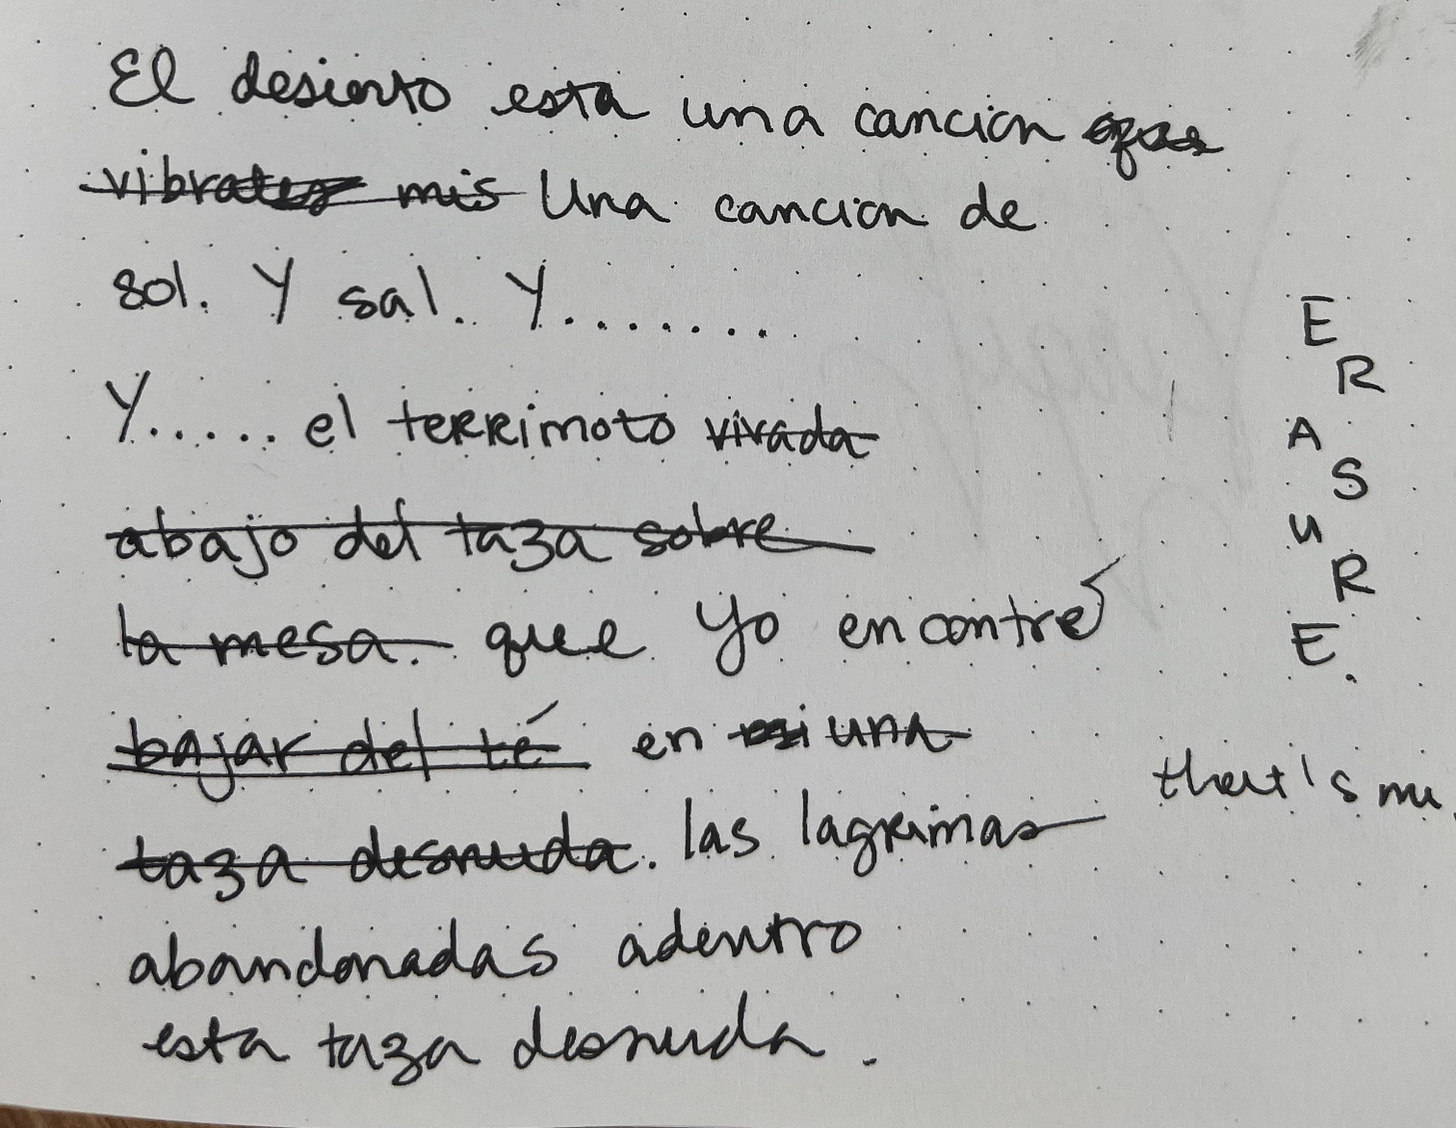 El desierto esta una cancion
vibrates mis Una cancion de
sol. Y sal. Y........
Y..... el terrimoto vivada
abajo del taza sobre
la mesa. que yo encontré
bajar del té en mi una
taza desnuda. las lagrimas
abandonadas adentro
esta taza desnuda.
E
R
A
S
U
R
E.
that's me